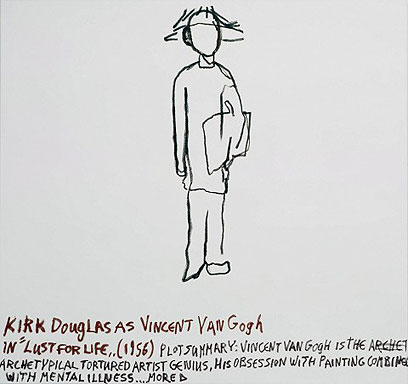 KIRK DOUGLAS AS VINCENT VAN GOGH
IN "LUST FOR LIFE,, (1956) PLOT SUMMARY: VINCENT VAN GOGH IS THE ARCHET
ARCHETYPICAL TORTURED ARTIST GENIUS, HIS OBSESSION WITH PAINTING COMBINED
WITH MENTAL ILLNESS...MORE